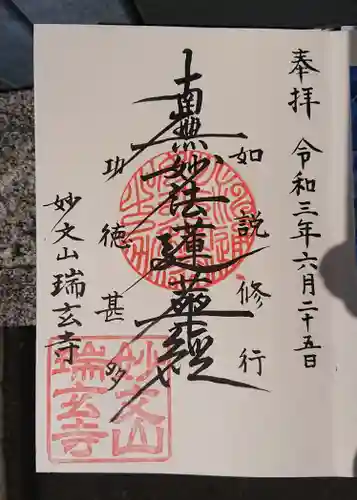 奉拝
令和三年六月二十五日
如説修行
南無妙法蓮華経
功徳甚多
妙文山瑞玄寺
妙文山
瑞玄寺